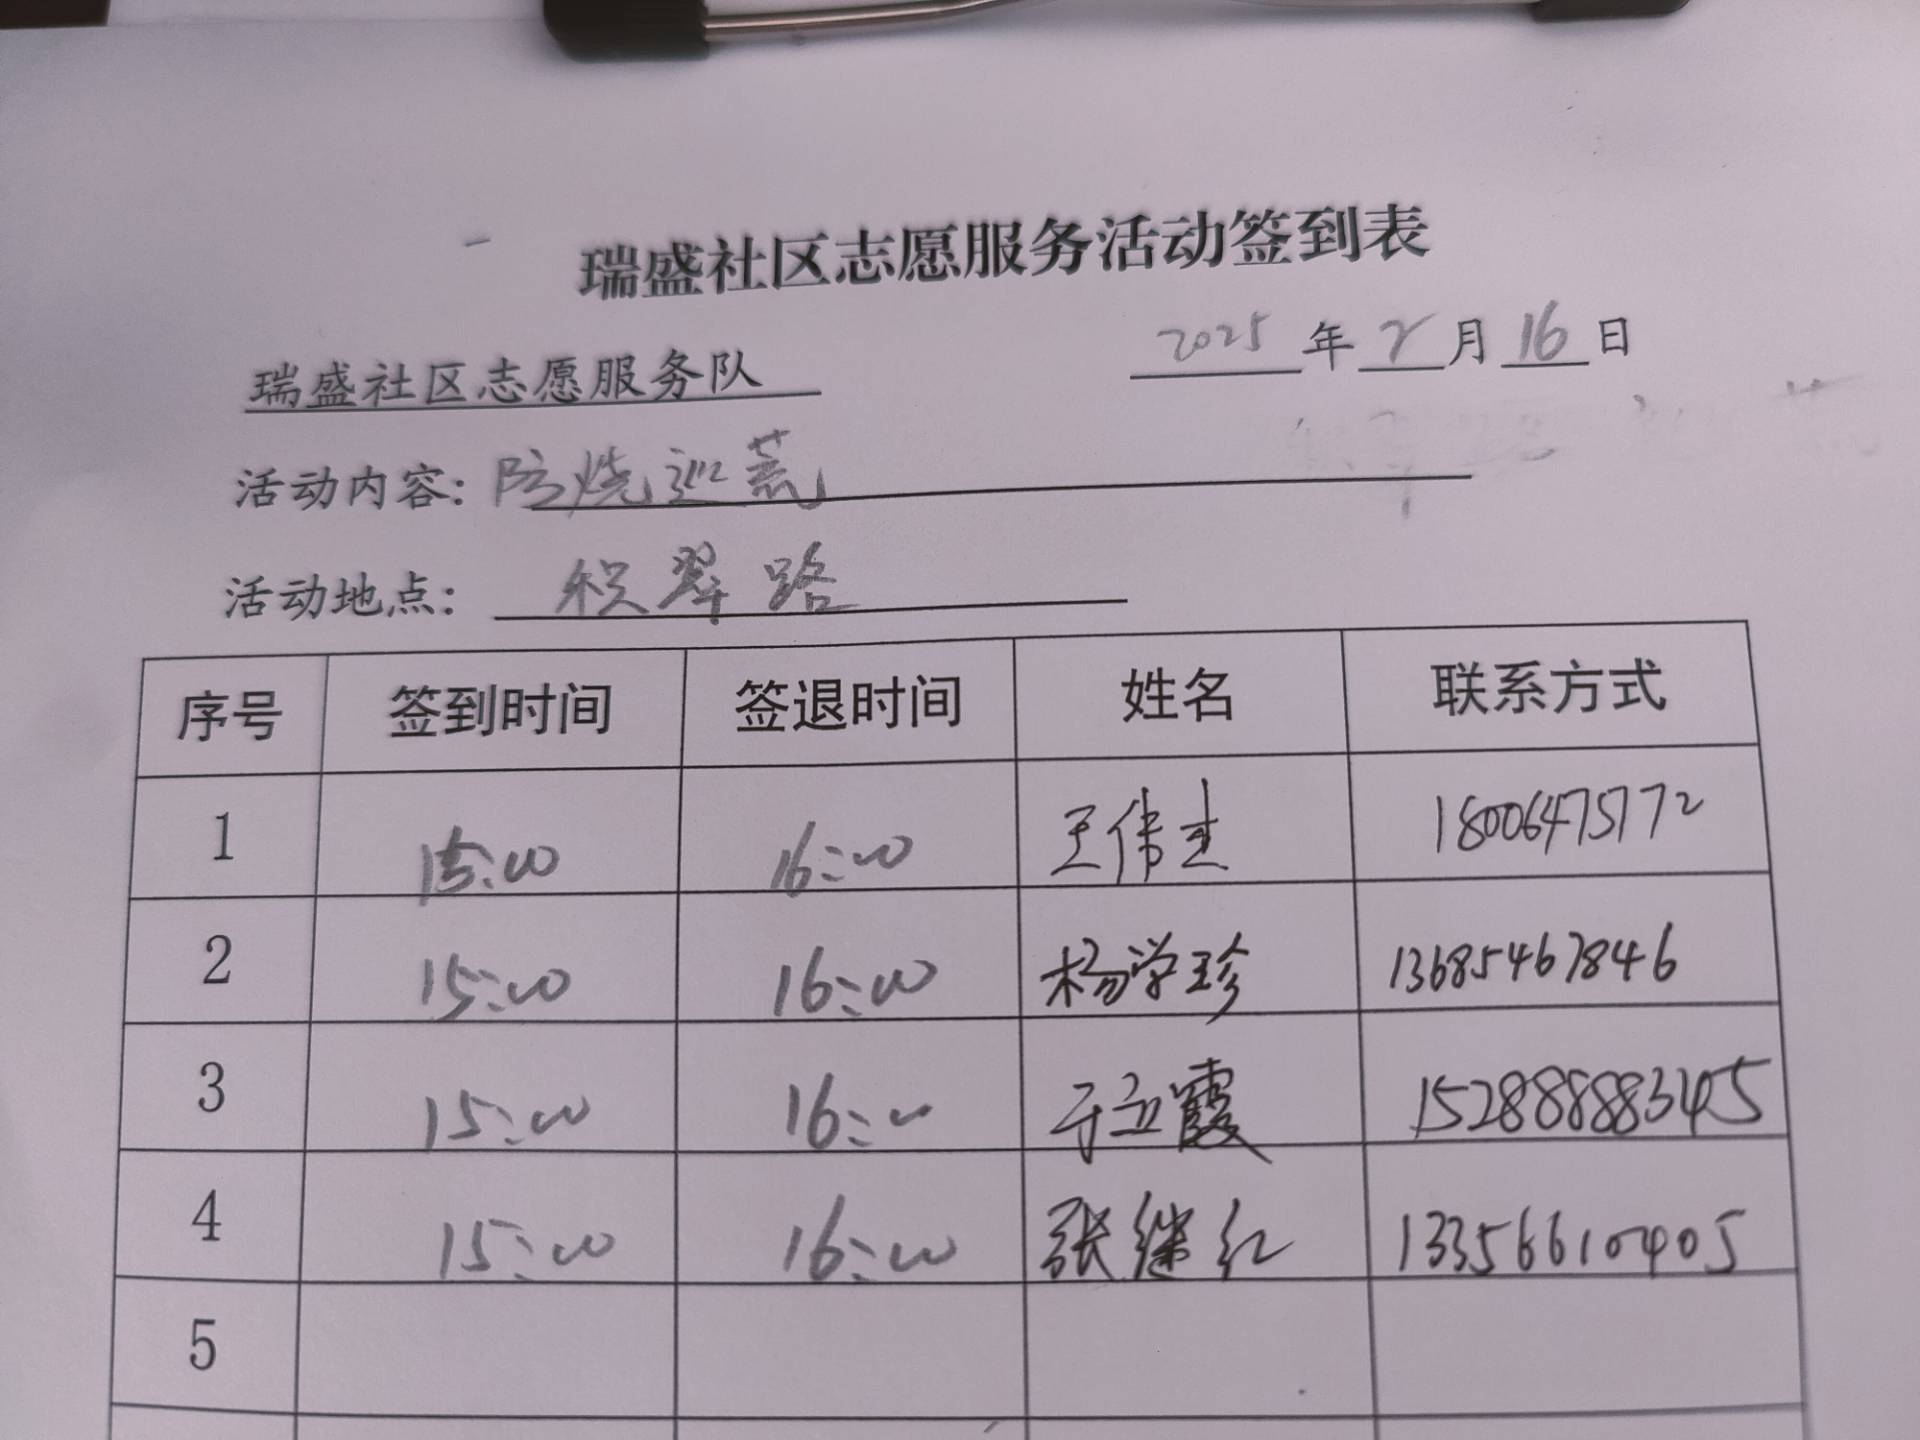 瑞盛社区志愿服务活动签到表
瑞盛社区志愿服务队 2025年2月16日
活动内容：防烧巡荒
活动地点：积翠路
序号 签到时间 签退时间 姓名 联系方式
1 15:00 16:00 王伟杰 18006475772
2 15:00 16:00 杨学珍 13685467846
3 15:00 16:00 于立霞 15288888345
4 15:00 16:00 张继红 13356610405
5